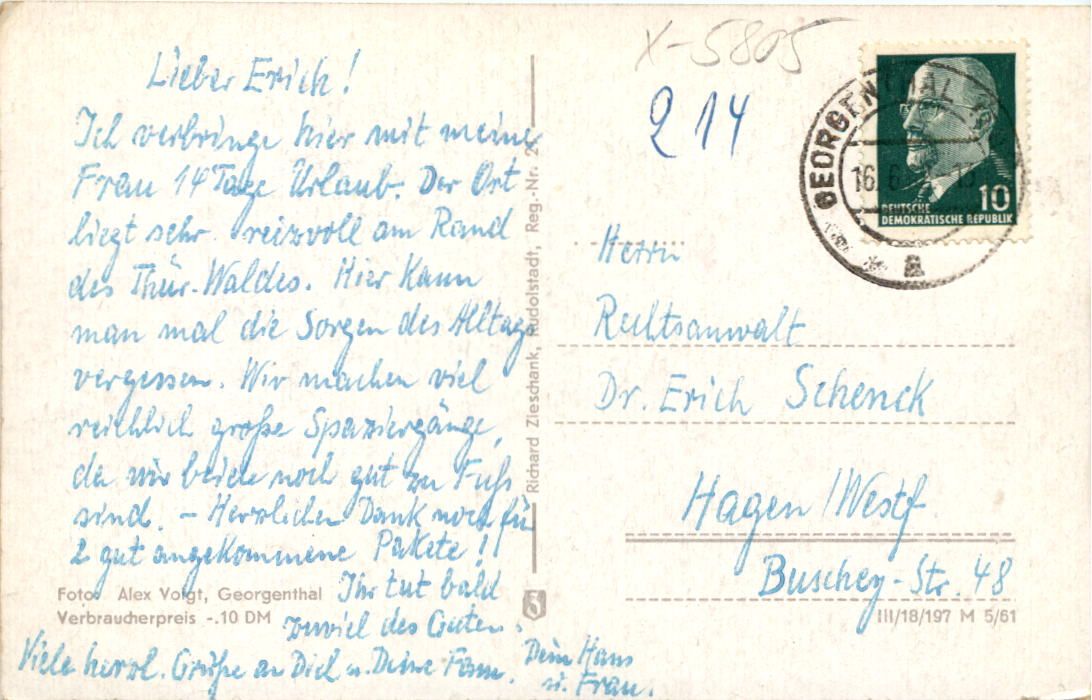 Lieber Erich!
Ich verbringe hier mit meiner
Frau 14 Tage Urlaub. Der Ort
liegt sehr reizvoll am Rand
des Thür. Waldes. Hier kann
man mal die Sorgen des Alltags
vergessen. Wir machen viel
reichlich große Spaziergänge,
da wir beide noch gut zu Fuß
sind. – Herzlichen Dank noch für
2 gut angekommene Pakete!
Ihr tut bald
zuviel des Guten.
Viele herzl. Grüße an Dich u. Deine Frau.
Dein Hans
u. Frau.
Foto: Alex Voigt, Georgenthal
Verbraucherpreis -.10 DM
Richard Zieschank, Rudolstadt, Reg.-Nr. 2
X-5805
214
GEORGENTHAL
16. 6.
a
10
DEUTSCHE
DEMOKRATISCHE REPUBLIK
Herrn
Rechtsanwalt
Dr. Erich Schenck
Hagen /Westf.
Buschey-Str. 48
III/18/197 M 5/61